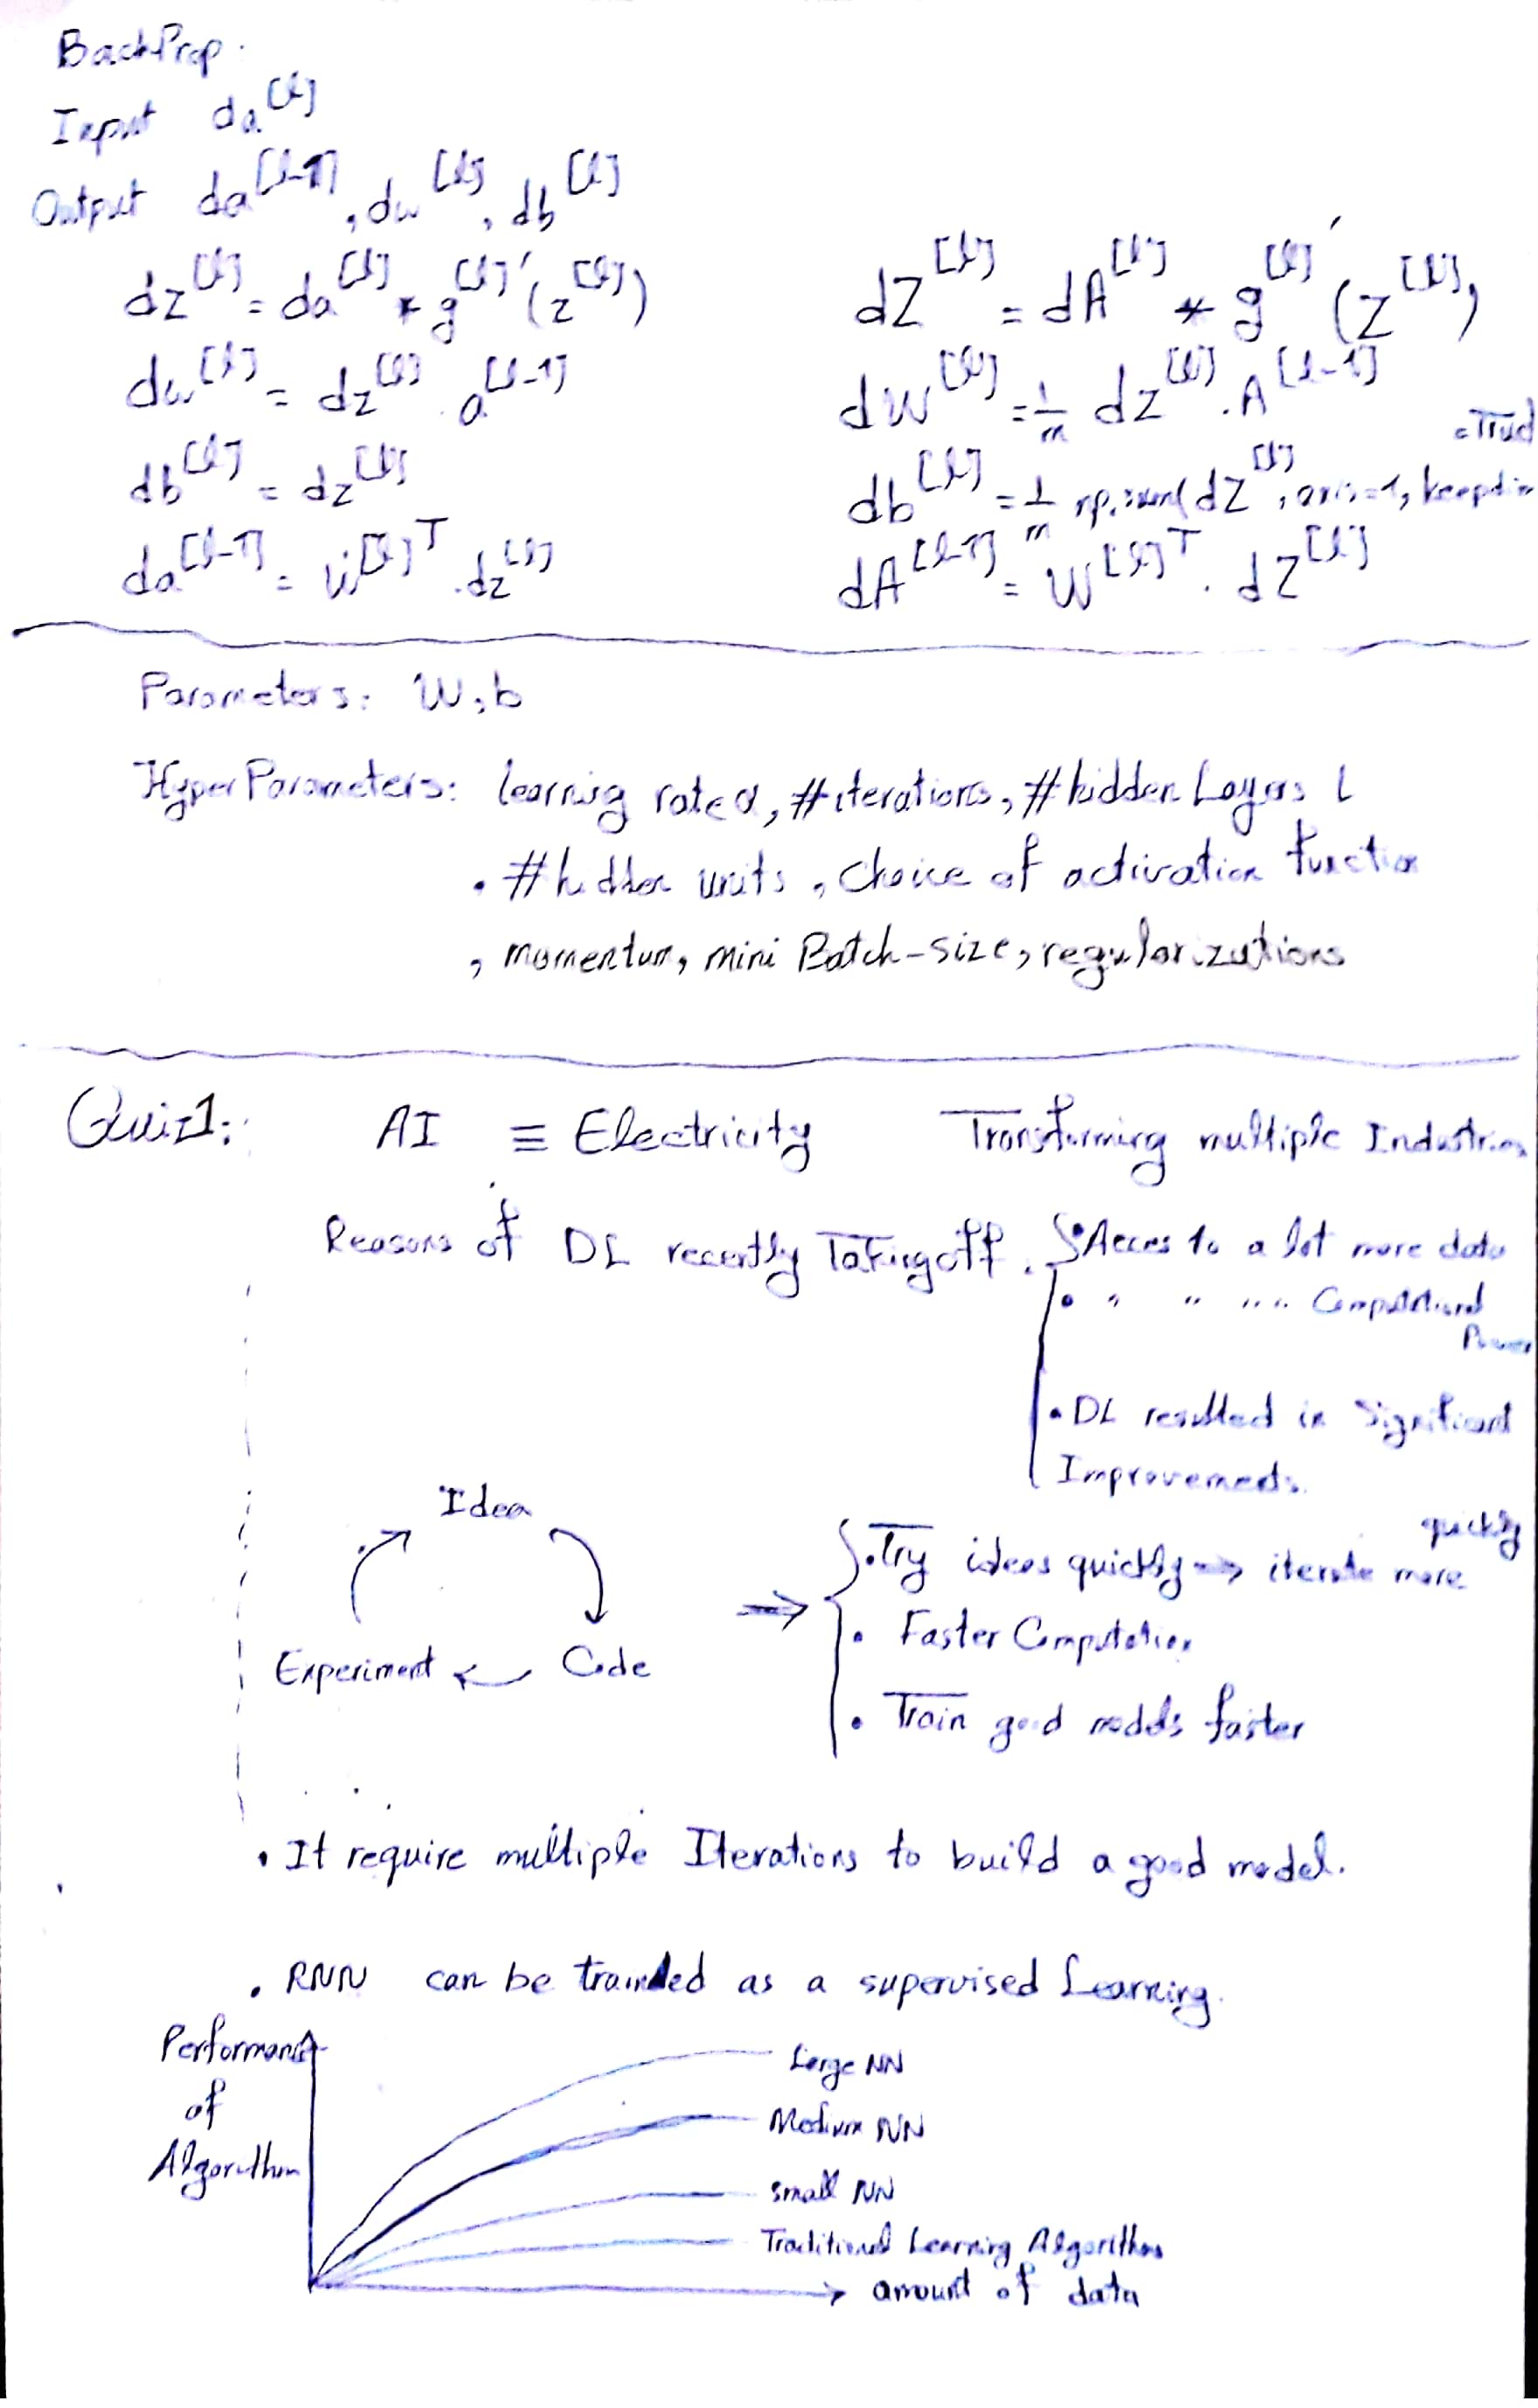 BackProp.
Input da^[l]
Output da^[l-1], dw^[l], db^[l]
dz^[l] = da^[l] * g^[l]'(z^[l])
dw^[l] = dz^[l] . a^[l-1]
db^[l] = dz^[l]
da^[l-1] = w^[l]T . dz^[l]
dZ^[l] = dA^[l] * g^[l]'(Z^[l])
dW^[l] = 1/m dz^[l] . A^[l-1]
db^[l] = 1/m np.sum(dZ^[l], axis=1, keepdim
=True
dA^[l-1] = W^[l]T . dZ^[l]
Parameters: W, b
HyperParameters: learning rate α, #iterations, #hidden Layers L
, #hidden units, Choice of activation function
, momentum, mini Batch-size, regularizations
Quiz1: AI ≡ Electricity Transforming multiple Industries
Reasons of DL recently Taking off.
• Acces to a lot more data
• " " " " Computational
Power
• DL resulted in Significant
Improvements.
Idea
Experiment ← Code
⇒
quickly
• Try ideas quickly → iterate more
• Faster Computation
• Train good models faster
• It require multiple Iterations to build a good model.
• RNN can be trainded as a supervised Learning.
Performance
of
Algorithm
Large NN
Medium NN
Small NN
Traditional Learning Algorithms
amount of data